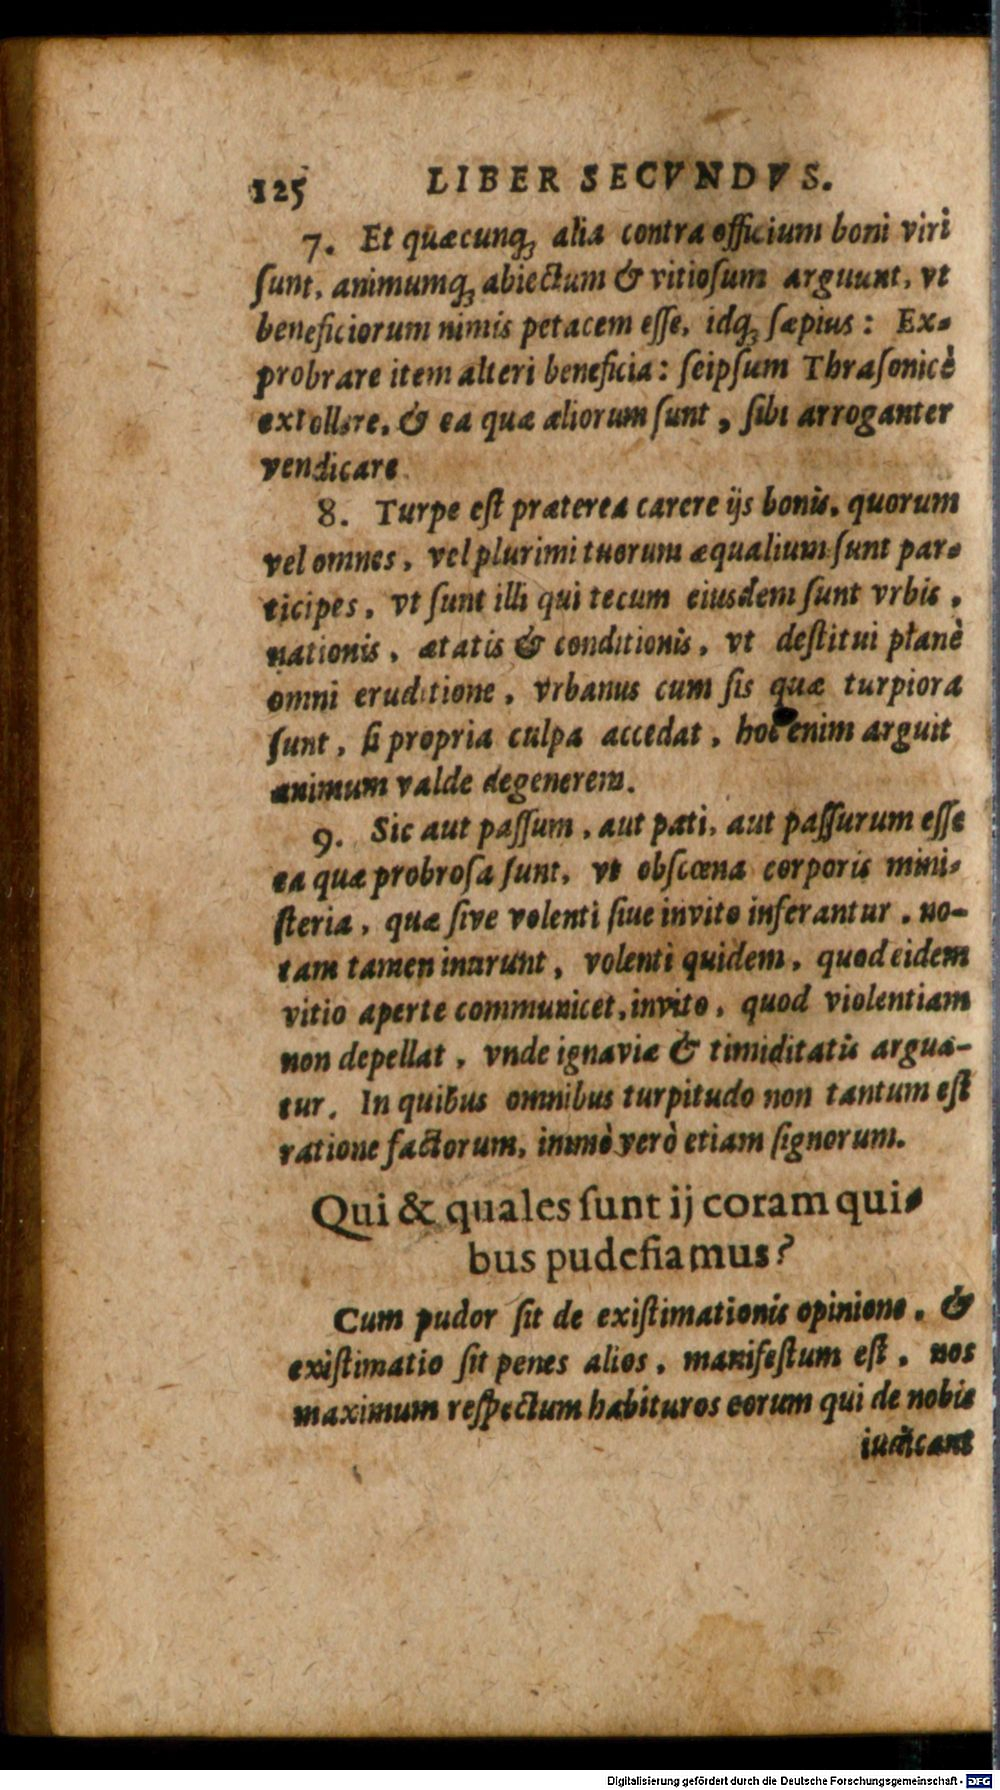 125 LIBER SECVNDVS.
7. Et quæcunq; alia contra officium boni viri
ſunt, animumq; abiectum & vitioſum arguunt, vt
beneficiorum nimis petacem eſſe, idq; ſæpius: Ex-
probrare item alteri beneficia: ſeipſum Thraſonicè
extollere, & ea quæ aliorum ſunt, ſibi arroganter
vendicare.
8. Turpe eſt præterea carere ijs bonis, quorum
vel omnes, vel plurimi tuorum æqualium ſunt par-
ticipes, vt ſunt illi qui tecum eiusdem ſunt vrbis,
nationis, ætatis & conditionis, vt deſtitui planè
omni eruditione, vrbanus cum ſis quæ turpiora
ſunt, ſi propria culpa accedat, hoc enim arguit
animum valde degenerem.
9. Sic aut paſſum, aut pati, aut paſſurum eſſe
ea quæ probroſa ſunt, vt obſcœna corporis mini-
ſteria, quæ ſive volenti ſiue invito inferantur, no-
tam tamen inurunt, volenti quidem, quod eidem
vitio aperte communicet, invito, quod violentiam
non depellat, vnde ignaviæ & timiditatis argua-
tur. In quibus omnibus turpitudo non tantum eſt
ratione factorum, immò verò etiam ſignorum.
Qui & quales ſunt ij coram qui-
bus pudefiamus?
Cum pudor ſit de exiſtimationis opinione, &
exiſtimatio ſit penes alios, manifeſtum eſt, nos
maximum reſpectum habituros eorum qui de nobis
iudicant
Digitalisierung gefördert durch die Deutsche Forschungsgemeinschaft - DFG